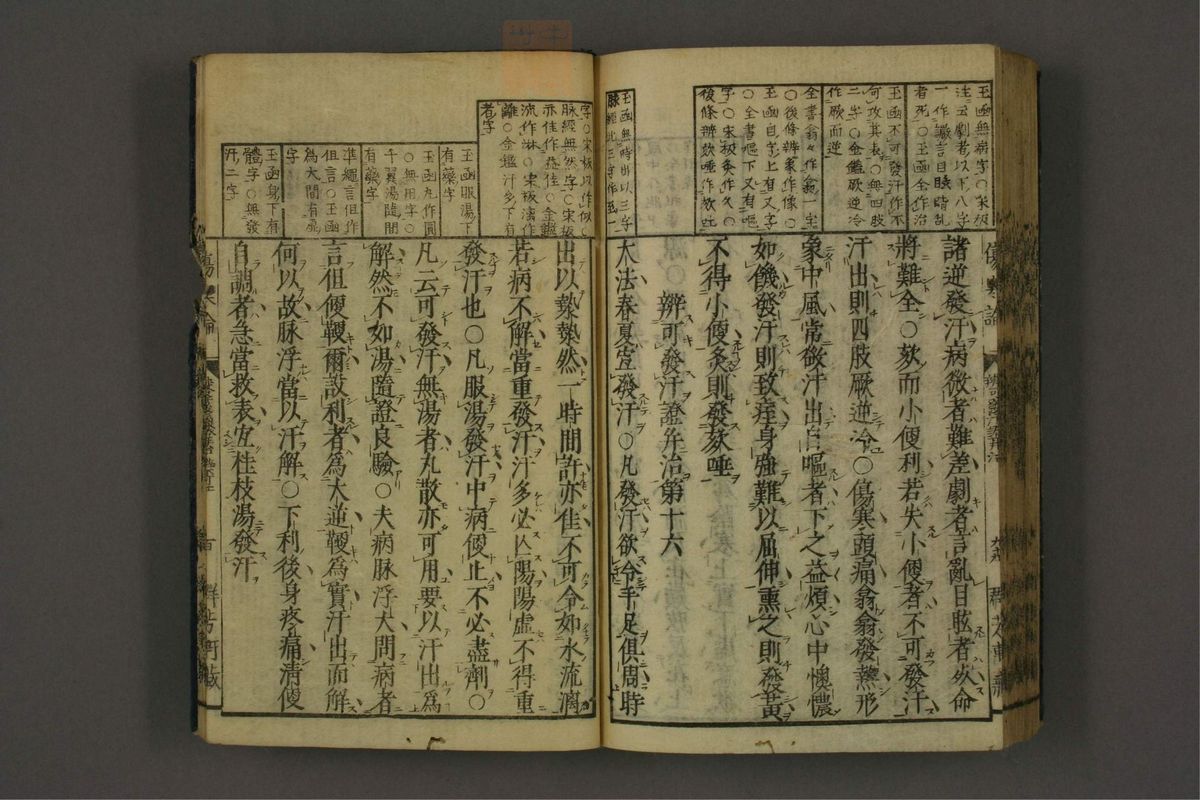 玉函無病字○宋板
注云劇者以下八字
一作讝言目眩時亂
者死○玉函全作治
玉函不可發汗作不
可攻其表○無四肢
二字○金鑑厥逆冷
作厥而逆
全書翁々作翕一字
○後條辨象作像○
玉函自字上有又字
○全書嘔下又有嘔
字○宋板灸作久○
後條辨欬唾作欬吐
玉函無時出以三字
脉經此三字作至一
諸逆發汗病微者難差劇者言亂目眩者死命
將難全○欬而小便利若失小便者不可發汗
汗出則四肢厥逆冷○傷寒頭痛翁翁發熱形
象中風常微汗出自嘔者下之益煩心中懊憹
如饑發汗則致痓身強難以屈伸熏之則發黃
不得小便灸則發欬唾
辨可發汗證并治第十六
大法春夏宜發汗○凡發汗欲令手足俱周時
字○宋板以作似○
脉經無然字○宋板
亦佳作益佳○金鑑
流作淋○宋板漓作
離○金鑑汗多下有
者字
玉函服湯下
有藥字
玉函丸作圓
○無用字○
千翼湯隨間
有藥字
準繩言但作
但言○玉函
為大間有虛
字
玉函身下有
體字○無發
汗二字
出以漐漐然一時間許亦佳不可令如水流漓
若病不解當重發汗汗多必亡陽陽虛不得重
發汗也○凡服湯發汗中病便止不必盡劑○
凡云可發汗無湯者丸散亦可用要以汗出為
解然不如湯隨證良驗○夫病脉浮大問病者
言但便鞕爾設利者為大逆鞕為實汗出而解
何以故脉浮當以汗解○下利後身疼痛清便
自調者急當救表宜桂枝湯發汗
傷寒論